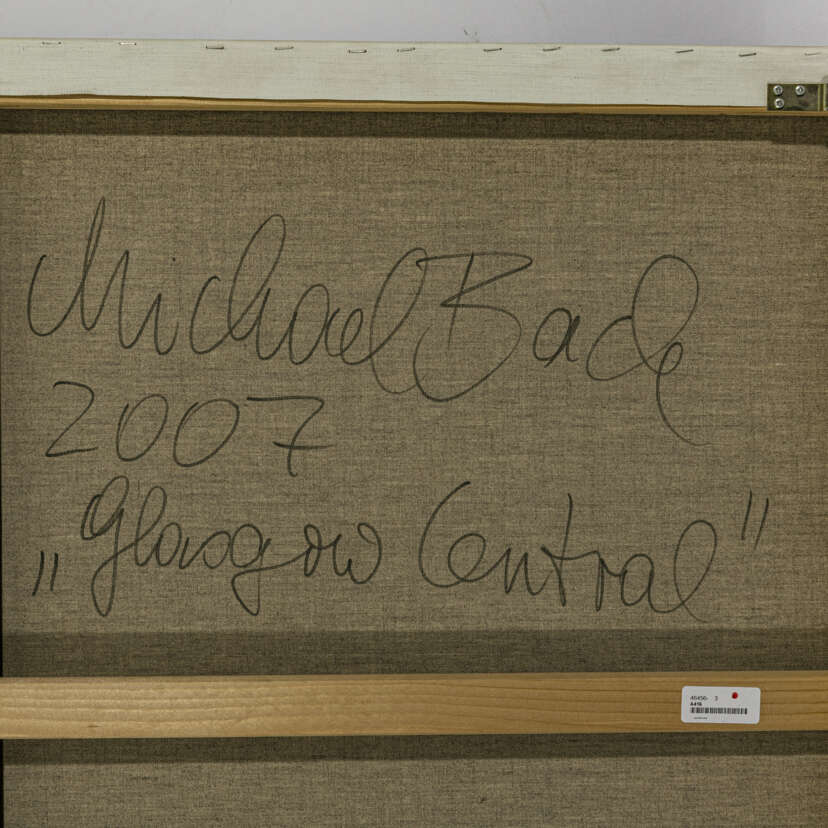 Michael Bach
2007
„Glasgow Central"
46456- 3
A418